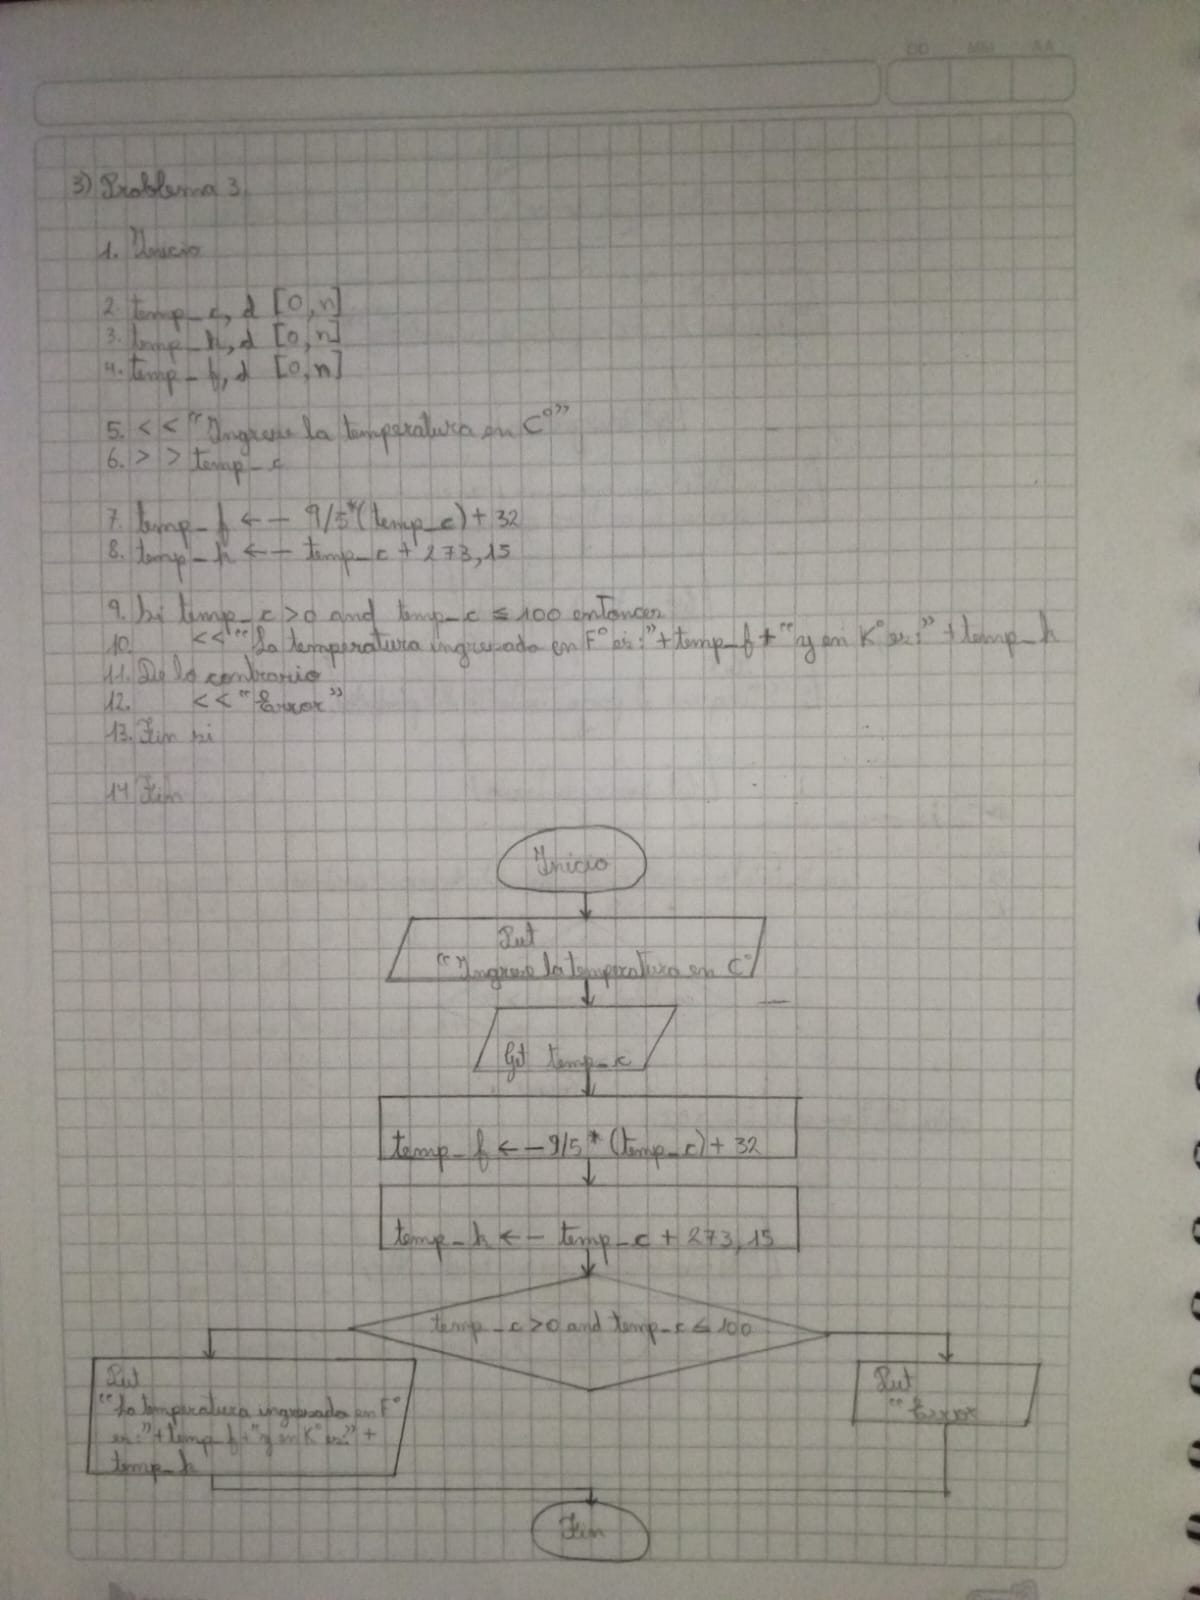 DD MM AA
3) Problema 3
1. Inicio
2. temp_c, d [0,n]
3. temp_k, d [0,n]
4. temp_f, d [0,n]
5. << "Ingrese la temperatura en C°"
6. >> temp_c
7. temp_f ←− 9/5*(temp_c)+32
8. temp_k ←− temp_c + 273,15
9. Si temp_c>0 and temp_c ≤ 100 entonces
10. <<"La temperatura ingresada en F° es:"+temp_f+"y en K° es:"+temp_k
11. De lo contrario
12. <<"Error"
13. Fin si
14 Fin
Inicio
Put
"Ingrese la temperatura en C°
Get temp_c
temp_f ←−9/5*(temp_c)+32
temp_k ←− temp_c + 273,15
temp_c>0 and temp_c ≤ 100
Put
"La temperatura ingresada en F°
es:"+temp_f+"y en K° es:"+
temp_k
Put
"Error
Fin